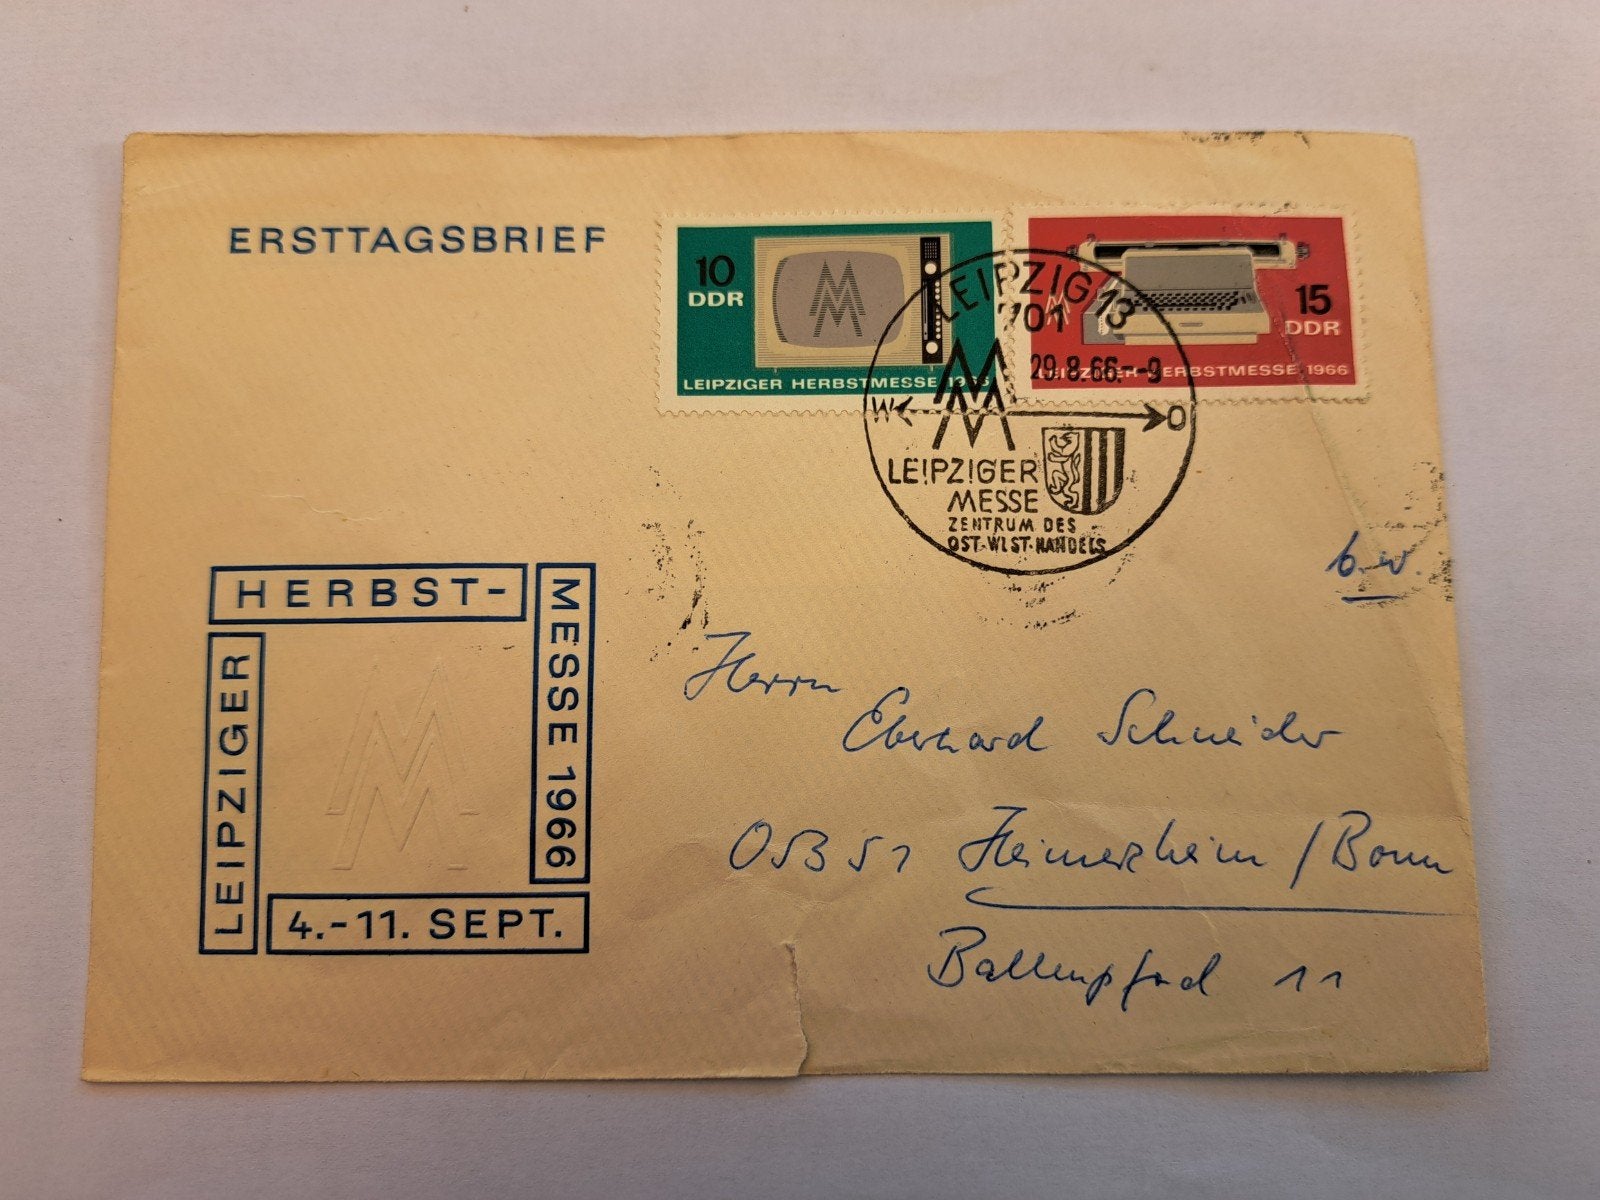 ERSTTAGSBRIEF
10
DDR
LEIPZIGER HERBSTMESSE 1966
15
DDR
LEIPZIGER HERBSTMESSE 1966
LEIPZIG 13
701
29.8.66.--9
W O
LEIPZIGER
MESSE
ZENTRUM DES
OST-WEST-HANDELS
b.w.
LEIPZIGER
HERBST-
MESSE 1966
4.-11. SEPT.
Herrn
Eberhard Schneider
5351 Heimerzheim / Bonn
11